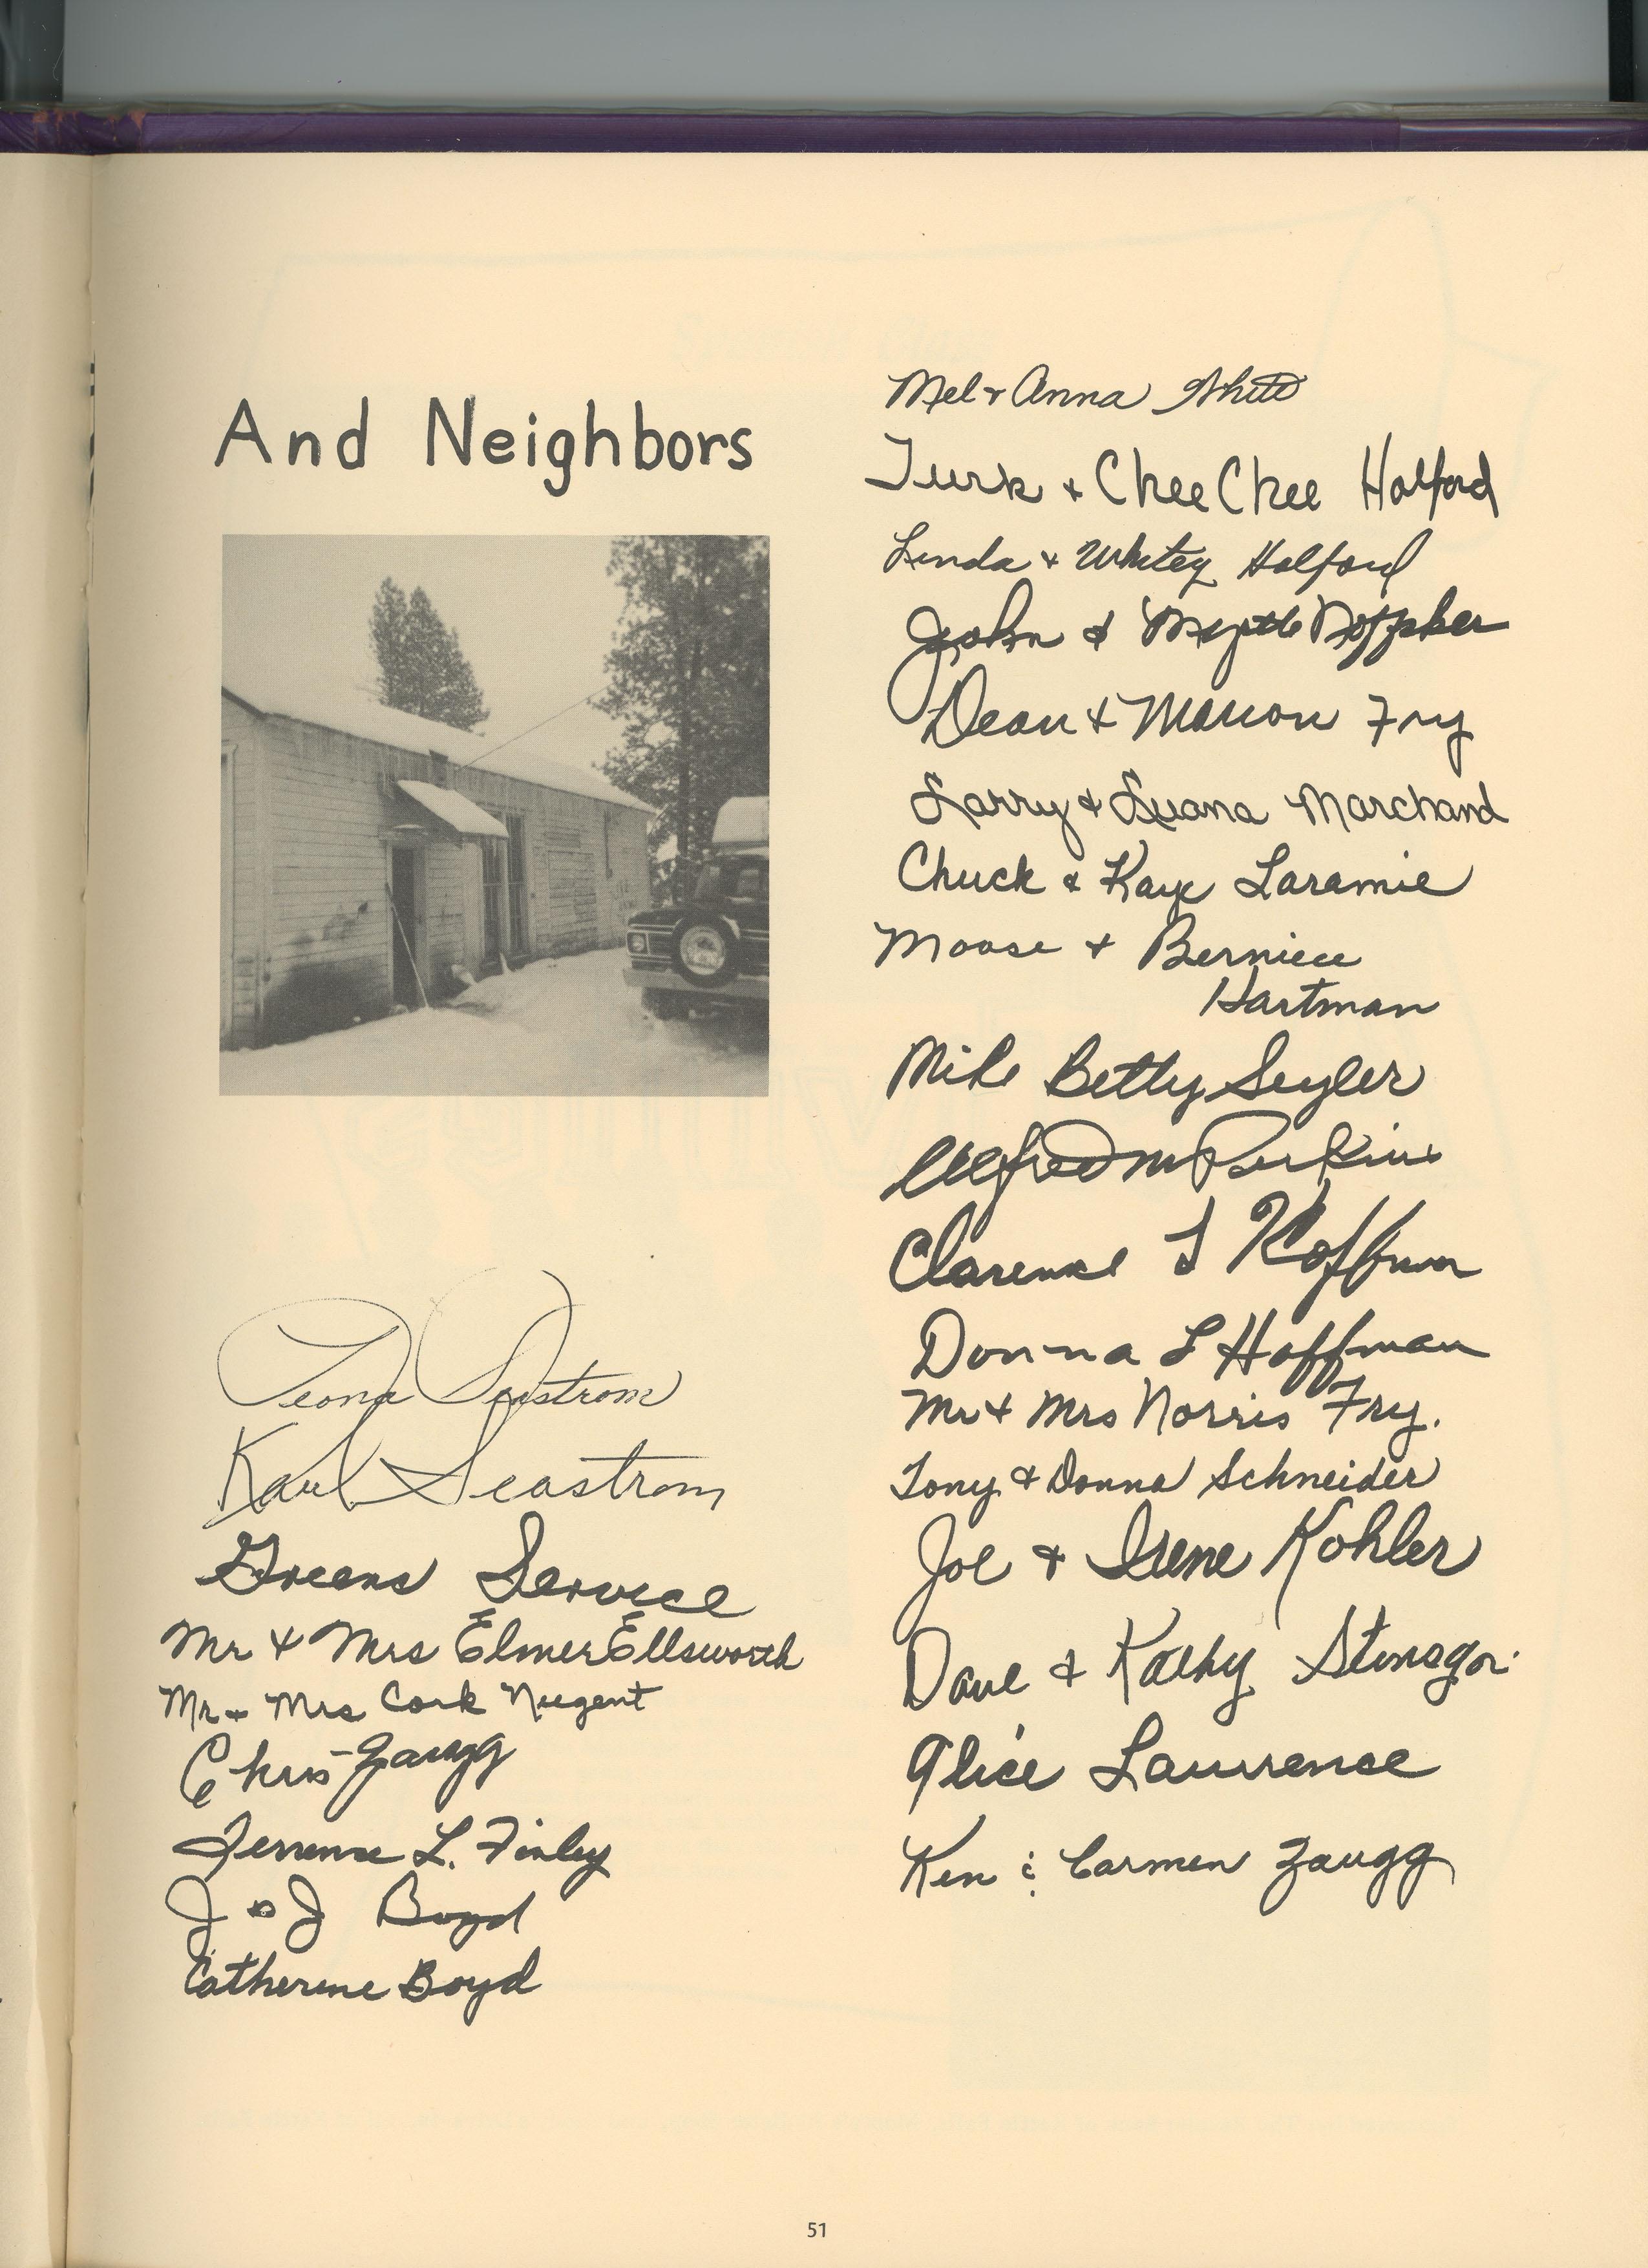 And Neighbors
Leona Seastrom
Karl Seastrom
Greens Service
Mr & Mrs Elmer Ellsworth
Mr & Mrs Cork Nugent
Chris Zaugg
Terrence L. Finley
J & J Boyd
Catherine Boyd
Mel & Anna White
Turk & CheeChee Halford
Linda & Whitey Halford
John & Myrtle
Dean & Marion Fry
Larry & Luana Marchand
Chuck & Kaye Laramie
Moose & Berniece
Hartman
Mike Betty Seyler
Alfred M Perkins
Clarence L Hoffman
Donna L Hoffman
Mr & Mrs Norris Fry.
Tony & Donna Schneider
Joe & Irene Kohler
Dave & Kathy
Alice Lawrence
Ken & Carmen Zaugg
51